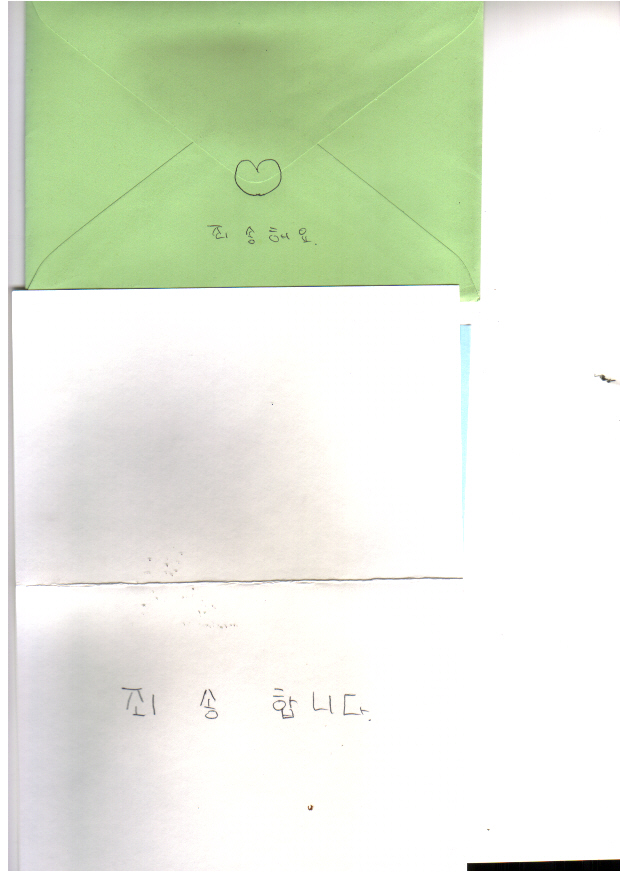 죄 송 해 요.
죄 송 합 니 다.